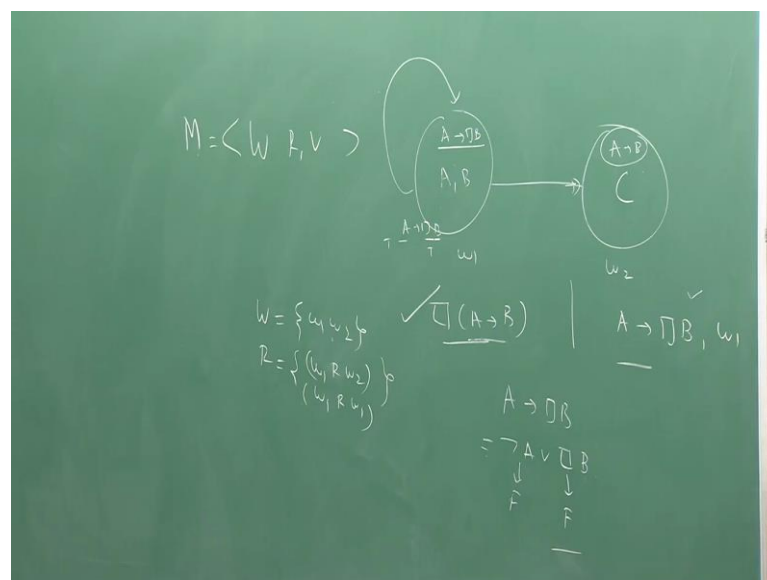 M = < W R, V >
A → □B
A, B
A → B
C
T A → □B
T
w₁
w₂
W = {w₁, w₂}
R = {(w₁ R w₂)
(w₁ R w₁)}
✓ □(A → B)
A → □B, w₁
✓
A → □B
= ¬A ∨ □B
↓ ↓
F F